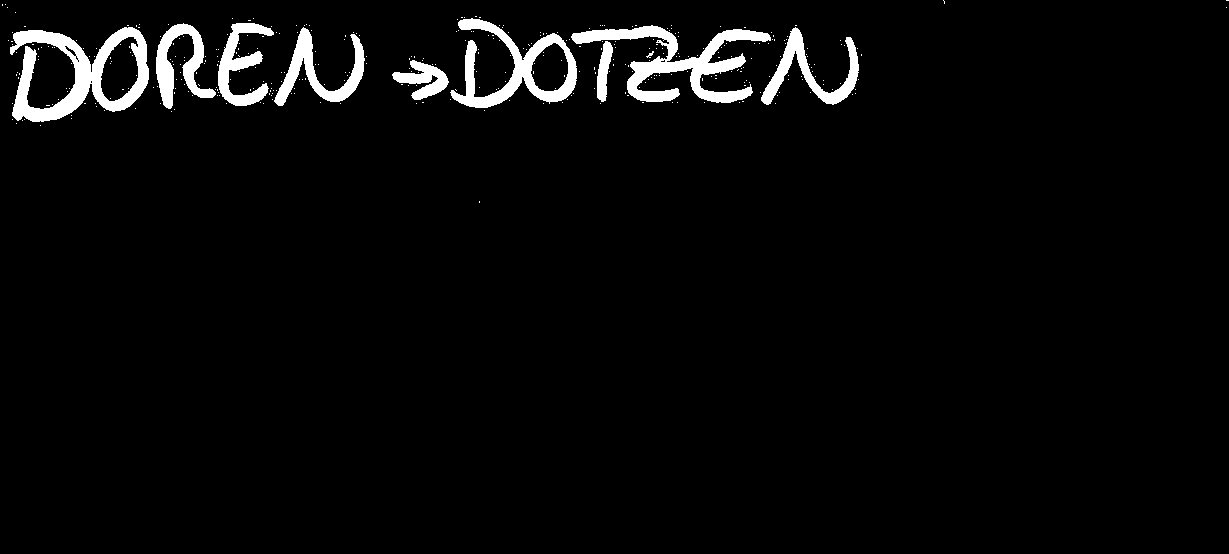 DOREN → DOTZEN